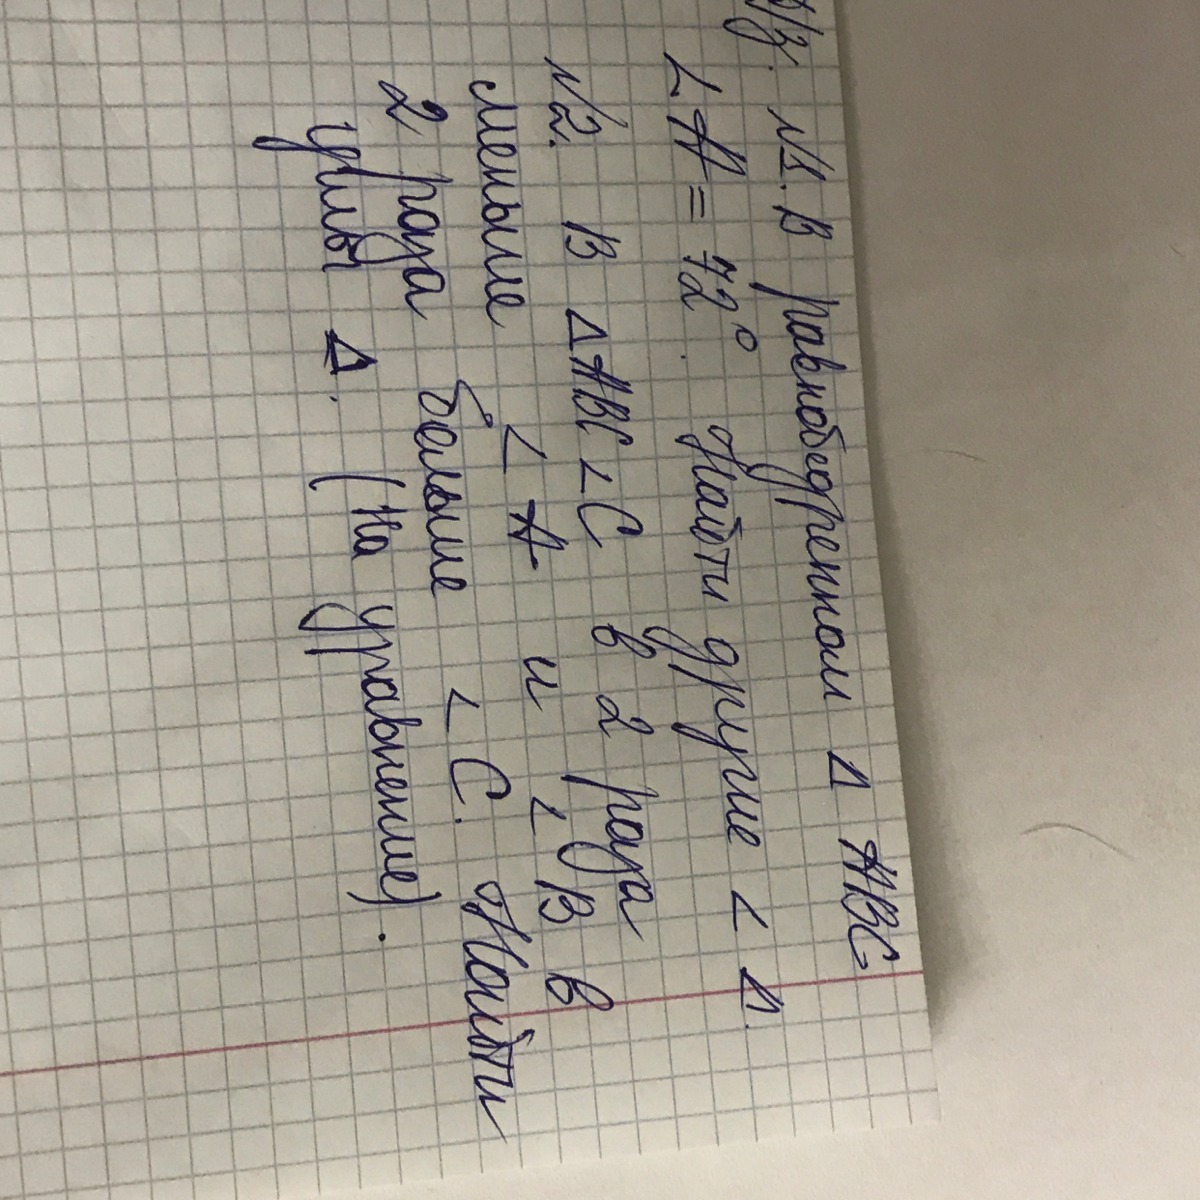 Д/з. №1. В равнобедренном Δ ABC
∠A = 72°. Найти другие ∠ Δ.
№2. В ΔABC ∠C в 2 раза
меньше ∠A и ∠B в
2 раза больше ∠C. Найти
углы Δ. (На уравнение).